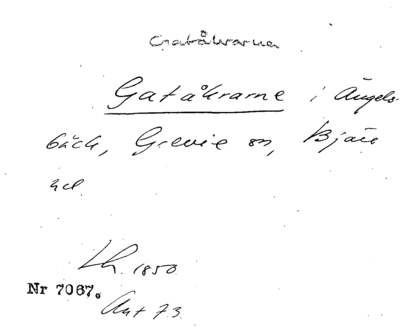 Gatåkrarna
Gatåkrarne i Ängels-
bäck, Grevie sn, Bjäre
hd
Lh. 1850
Nr 7067.
Ant 73.